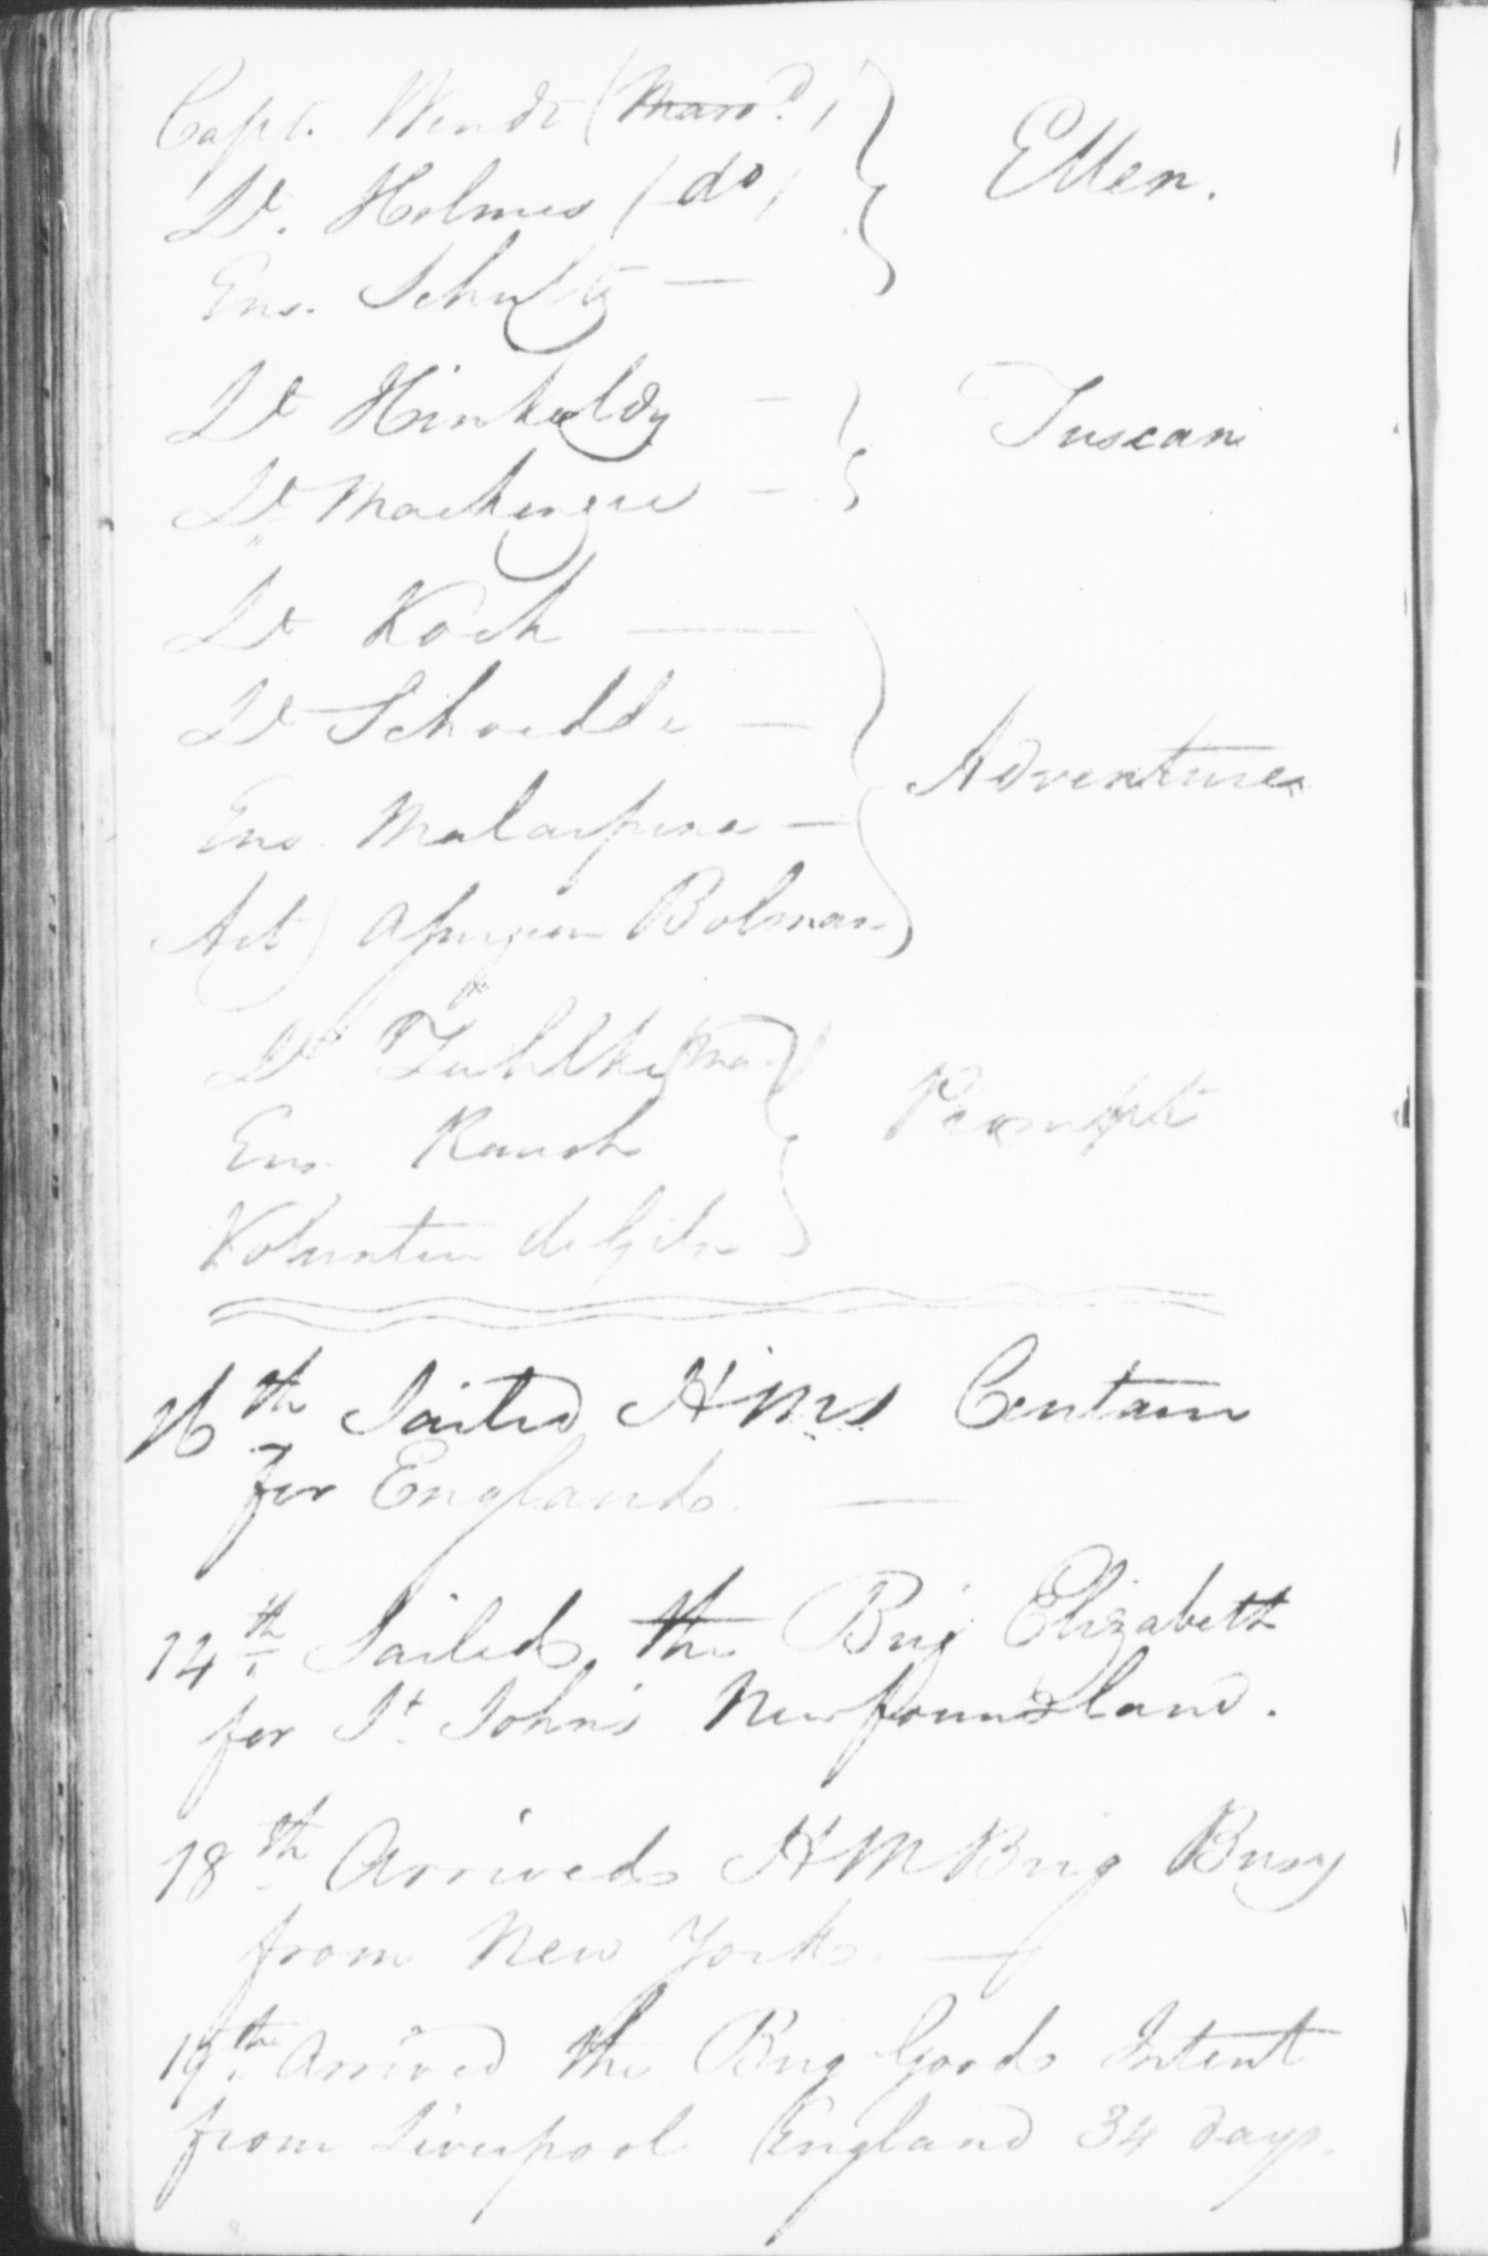 Capt. Wendt (Marrd)
Lt. Holmes (do) Ellen.
Ens. Schultz —
Lt Hinkeldy — Tuscan
Lt Mackenzie —
Lt Koch —
Lt Schaedde —
Ens. Malaspina — Adventure
Act) Bolman
Lt
Ens. Rauch Prompt
Volunteer
16th Sailed HMS Centaur
for England. —
14th Sailed the Brig Elizabeth
for St. John's Newfoundland.
18th Arrived HM Brig Busy
from New York. —
19th Arrived the Brig Good Intent
from Liverpool England 34 days.